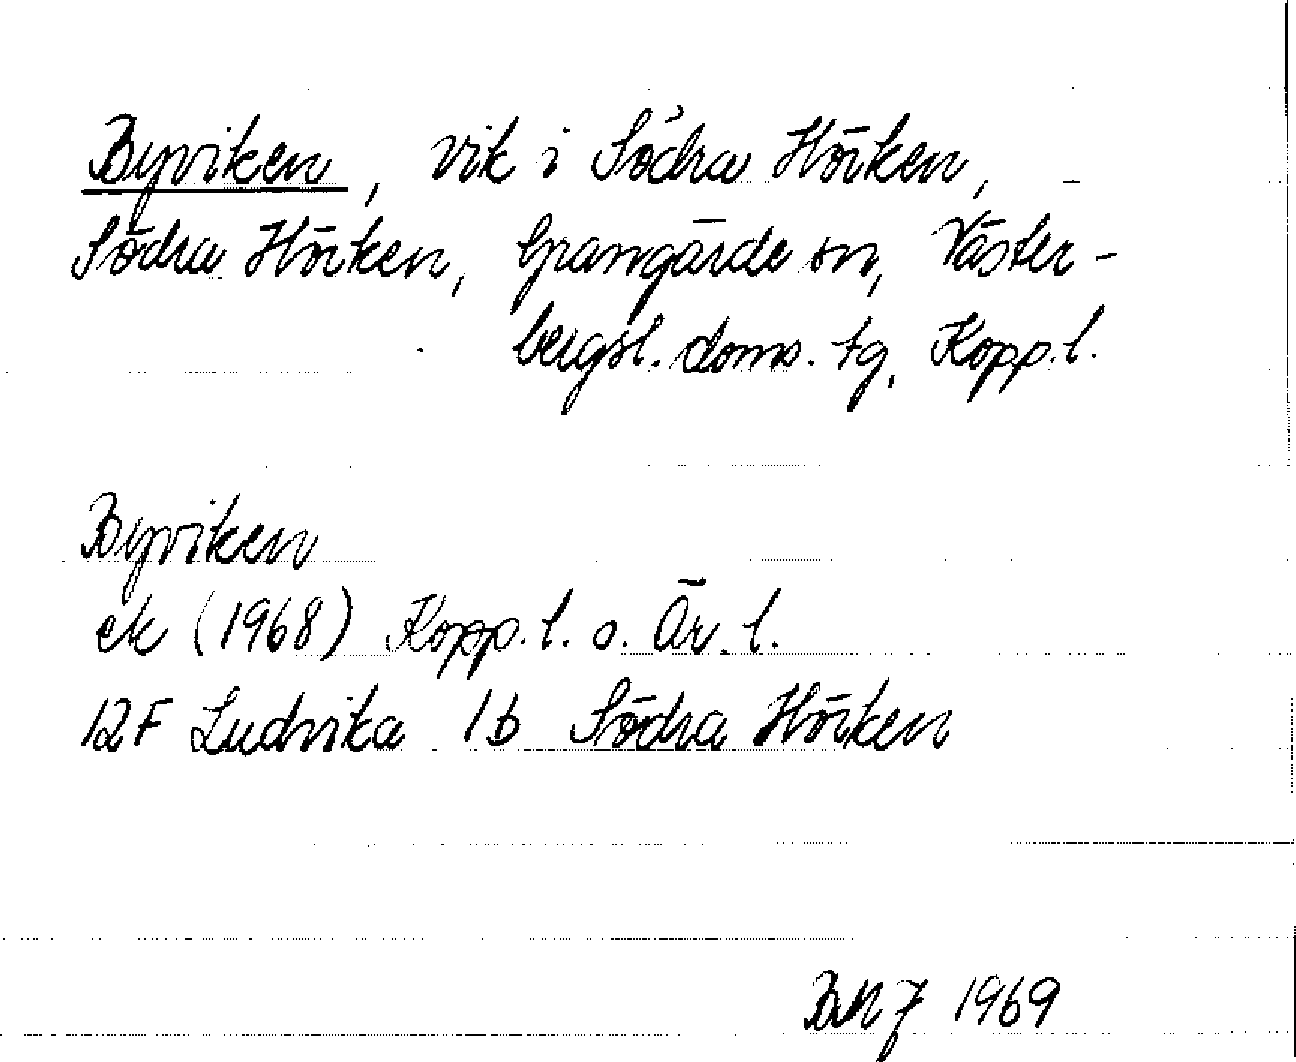 Byviken, vik i Södra Hörken,
Södra Hörken, Grangärde sn, Väster-
bergsl. doms. tg, Kopp. l.
Byviken
ek (1968) Kopp. l. o. Ör. l.
12F Ludvika 1b Södra Hörken
BMJ 1969